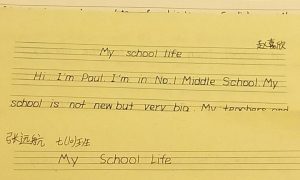 赵嘉欣
My school life
Hi I'm Paul. I'm in No.1 Middle School. My
school is not new but very big. My teachers and
张远航 七(10)班
My School Life